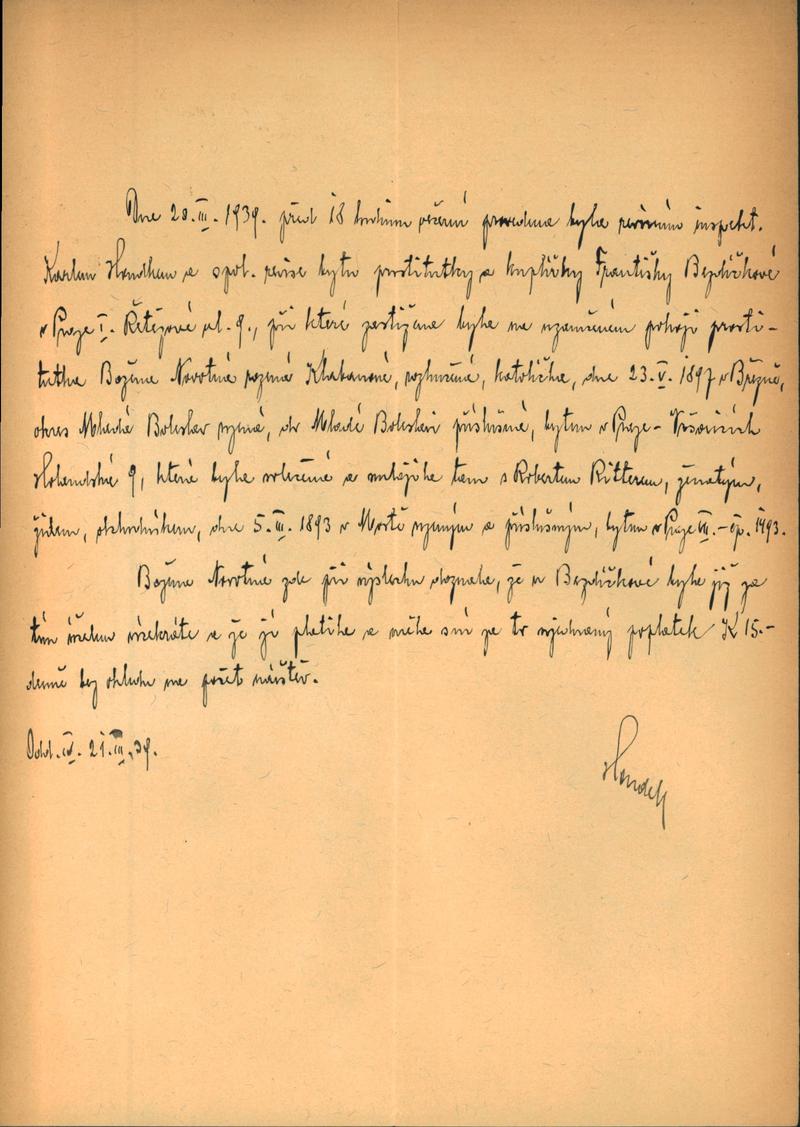 Dne 20.III.1939. před 18 hodinou večerní provedena byla revisním inspekt.
Karlem Handkem a spol. revise bytu prostitutky a kuplířky Františky Bezdíčkové
v Praze I. Řetězové ul. 9., při které zastižena byla na uzamčeném pokoji prosti-
tutka Božena Novotná rozená Klabanová, rozloučená, katolička, dne 23.V.1897 v Březně,
okres Mladá Boleslav rozená, do Mladé Boleslavi příslušná, bytem v Praze - Vršovicích
Holandská 9, která byla svlečená a nalézala tam s Robertem Ritterem, ženatým,
židem, obchodníkem, dne 5.III.1893 v Mostě rozeným a příslušným, bytem v Praze VII.-čp. 1493.
Božena Novotná zde při výslechu doznala, že u Bezdíčkové byla již za
tím účelem vícekráte a že jí platila a měla s ní za to ujednaný poplatek K 15.-
denně bez ohledu na počet návštěv.
Odd. IV. 21.III.39.
Handek